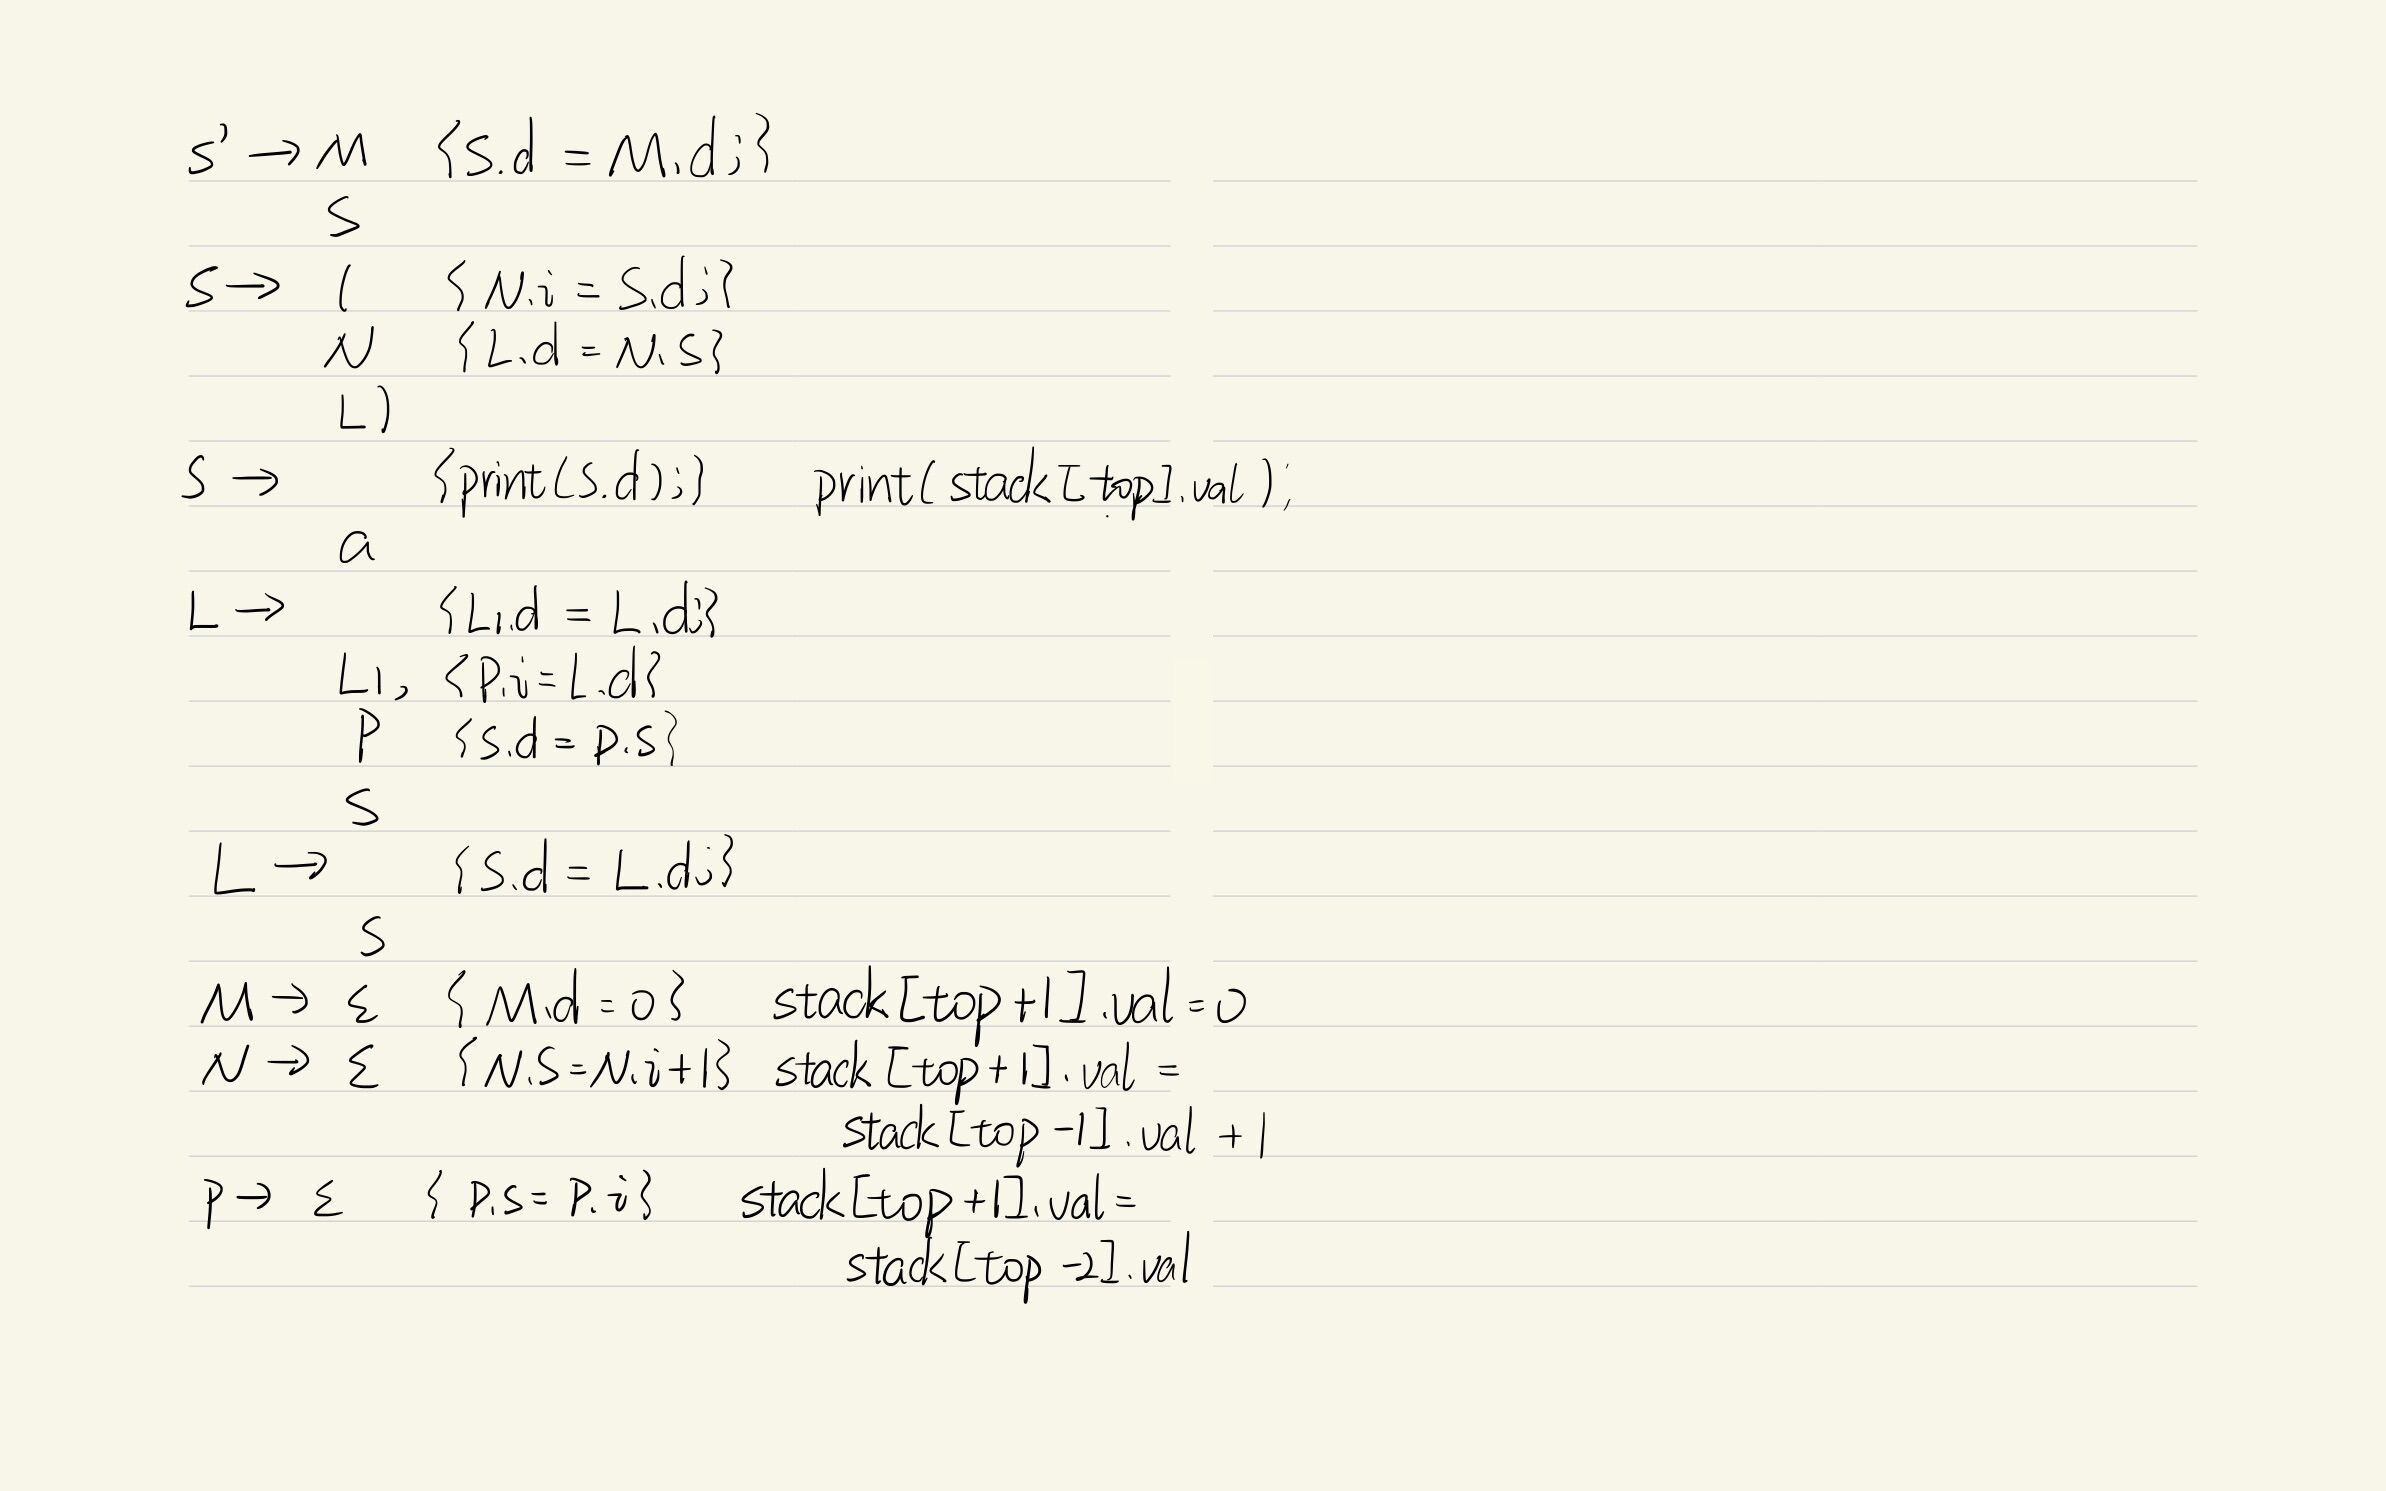 S' → M {S.d = M.d;}
S
S → ( {N.i = S.d;}
N {L.d = N.s}
L)
S → {print(S.d);} print(stack[top].val);
a
L → {L1.d = L.d;}
L1, {P.i=L.d}
P {S.d = P.s}
S
L → {S.d = L.d;}
S
M → ε {M.d = 0} stack[top+1].val=0
N → ε {N.S=N.i+1} stack[top+1].val =
stack[top-1].val + 1
P → ε {P.s= P.i} stack[top+1].val=
stack[top-2].val